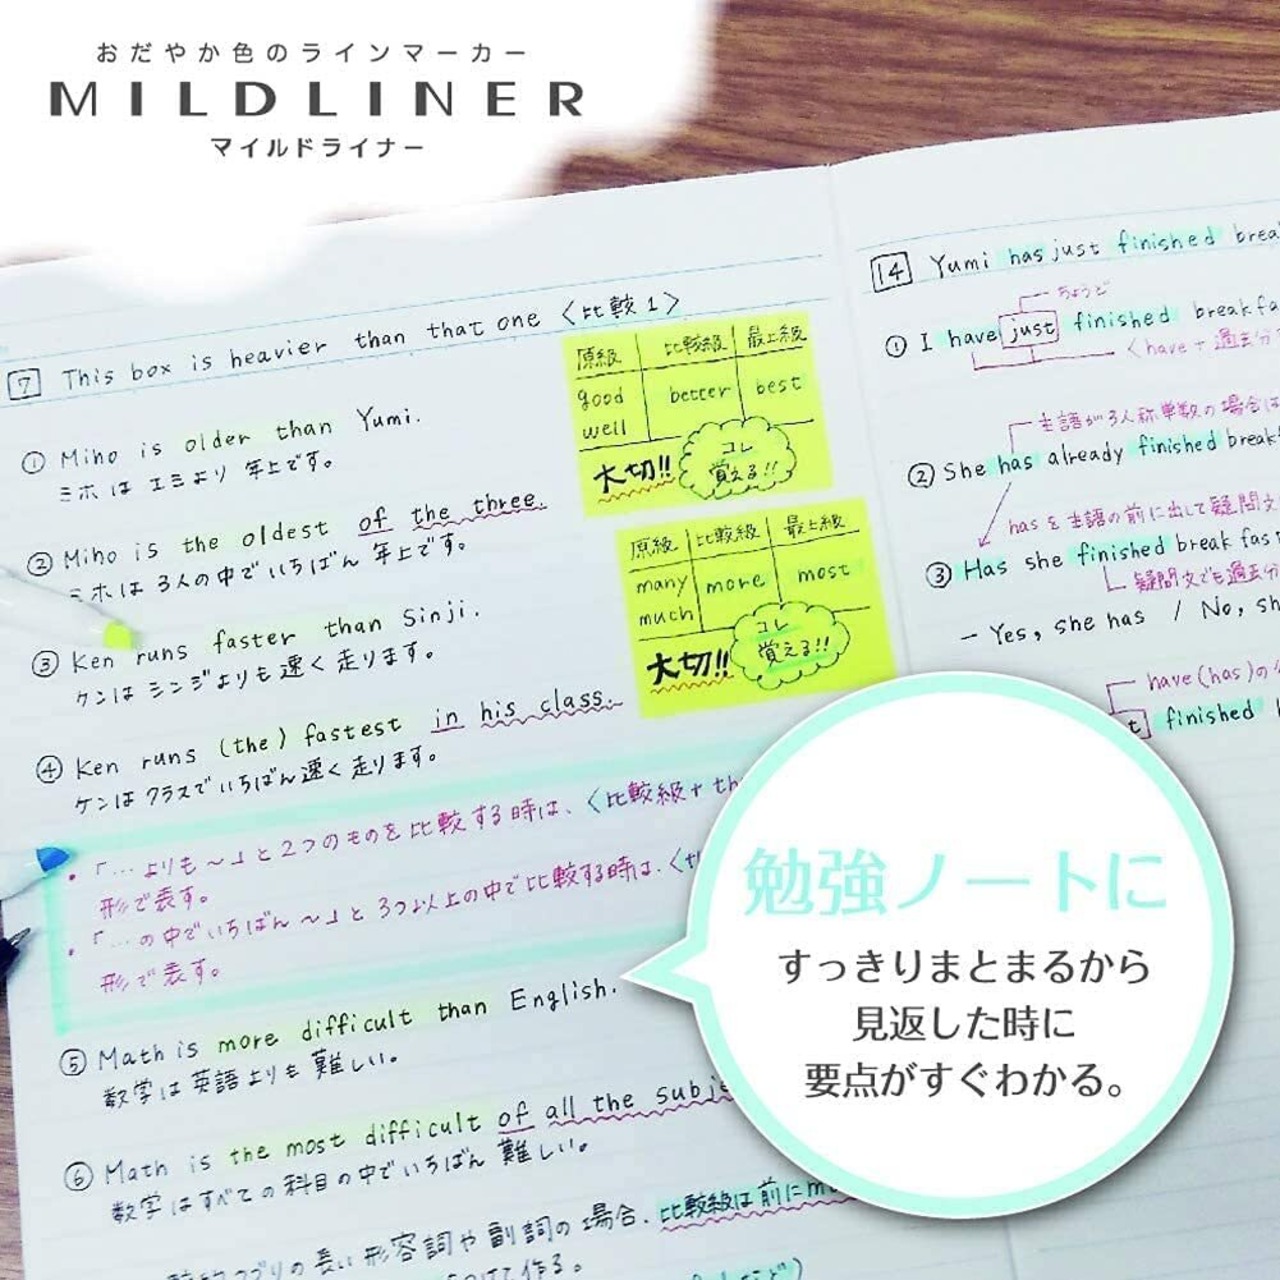 おだやか色のラインマーカー
MILDLINER
マイルドライナー
7 This box is heavier than that one 〈比較1〉
① Miho is older than Yumi.
ミホは エミより 年上です。
② Miho is the oldest of the three.
ミホは 3人の中でいちばん 年上です。
③ Ken runs faster than Sinji.
ケンは シンジよりも 速く 走ります。
④ Ken runs (the) fastest in his class.
ケンは クラスでいちばん 速く 走ります。
・「…よりも〜」と2つのものを比較する時は、〈比較級+th
形で表す。
・「…の中でいちばん〜」と3つ以上の中で比較する時は、〈t
形で表す。
⑤ Math is more difficult than English.
数学は英語よりも難しい。
⑥ Math is the most difficult of all the subj
数学はすべての科目の中でいちばん 難しい。
の長い形容詞や副詞の場合、比較級は前にm
て作る。
原級 比較級 最上級
good better best
well
大切!! コレ
覚える!!
原級 比較級 最上級
many more most
much
大切!! コレ
覚える!!
14 Yumi has just finished brea
ちょうど
① I have just finished breakfa
〈have+過去分
主語が3人称単数の場合は
② She has already finished break
hasを主語の前に出して疑問文
③ Has she finished break fas
疑問文でも過去分
- Yes, she has / No, sh
have(has)の
t finished
勉強ノートに
すっきりまとまるから
見返した時に
要点がすぐわかる。